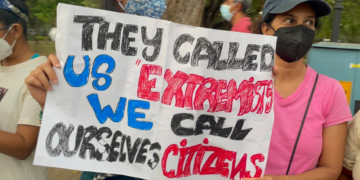 THEY CALLED
US "EXTREMISTS"
WE CALL
OURSELVES CITIZENS